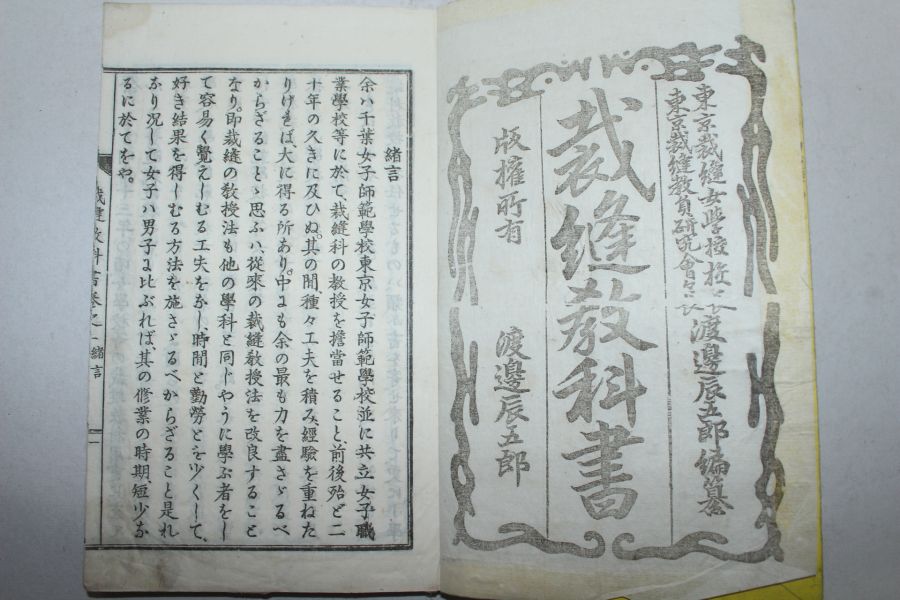 東京裁縫女學校校長
東京裁縫教員研究會々長
渡邊辰五郎編纂
裁縫教科書
版權所有
渡邊辰五郎
緒言
余ハ千葉女子師範學校東京女子師範學校並に共立女子職
業學校等に於て、裁縫科の教授を擔當せること、前後殆ど二
十年の久きに及ひぬ。其の間、種々工夫を積み、經驗を重ねた
りければ、大に得る所あり。中にも余の最も力を盡さゞるべ
からざることゝ思ふハ、從來の裁縫教授法を改良すること
なり。即裁縫の教授法も他の學科と同しやうに學ぶ者をし
て容易く覺えしむる工夫をなし、時間と勤勞とを少くして、
好き結果を得しむる方法を施さゞるべからざること是れ
なり况して女子ハ男子に比ぶれば、其の修業の時期、短少な
るに於てをや。
裁縫教科書卷之一 緒言
一